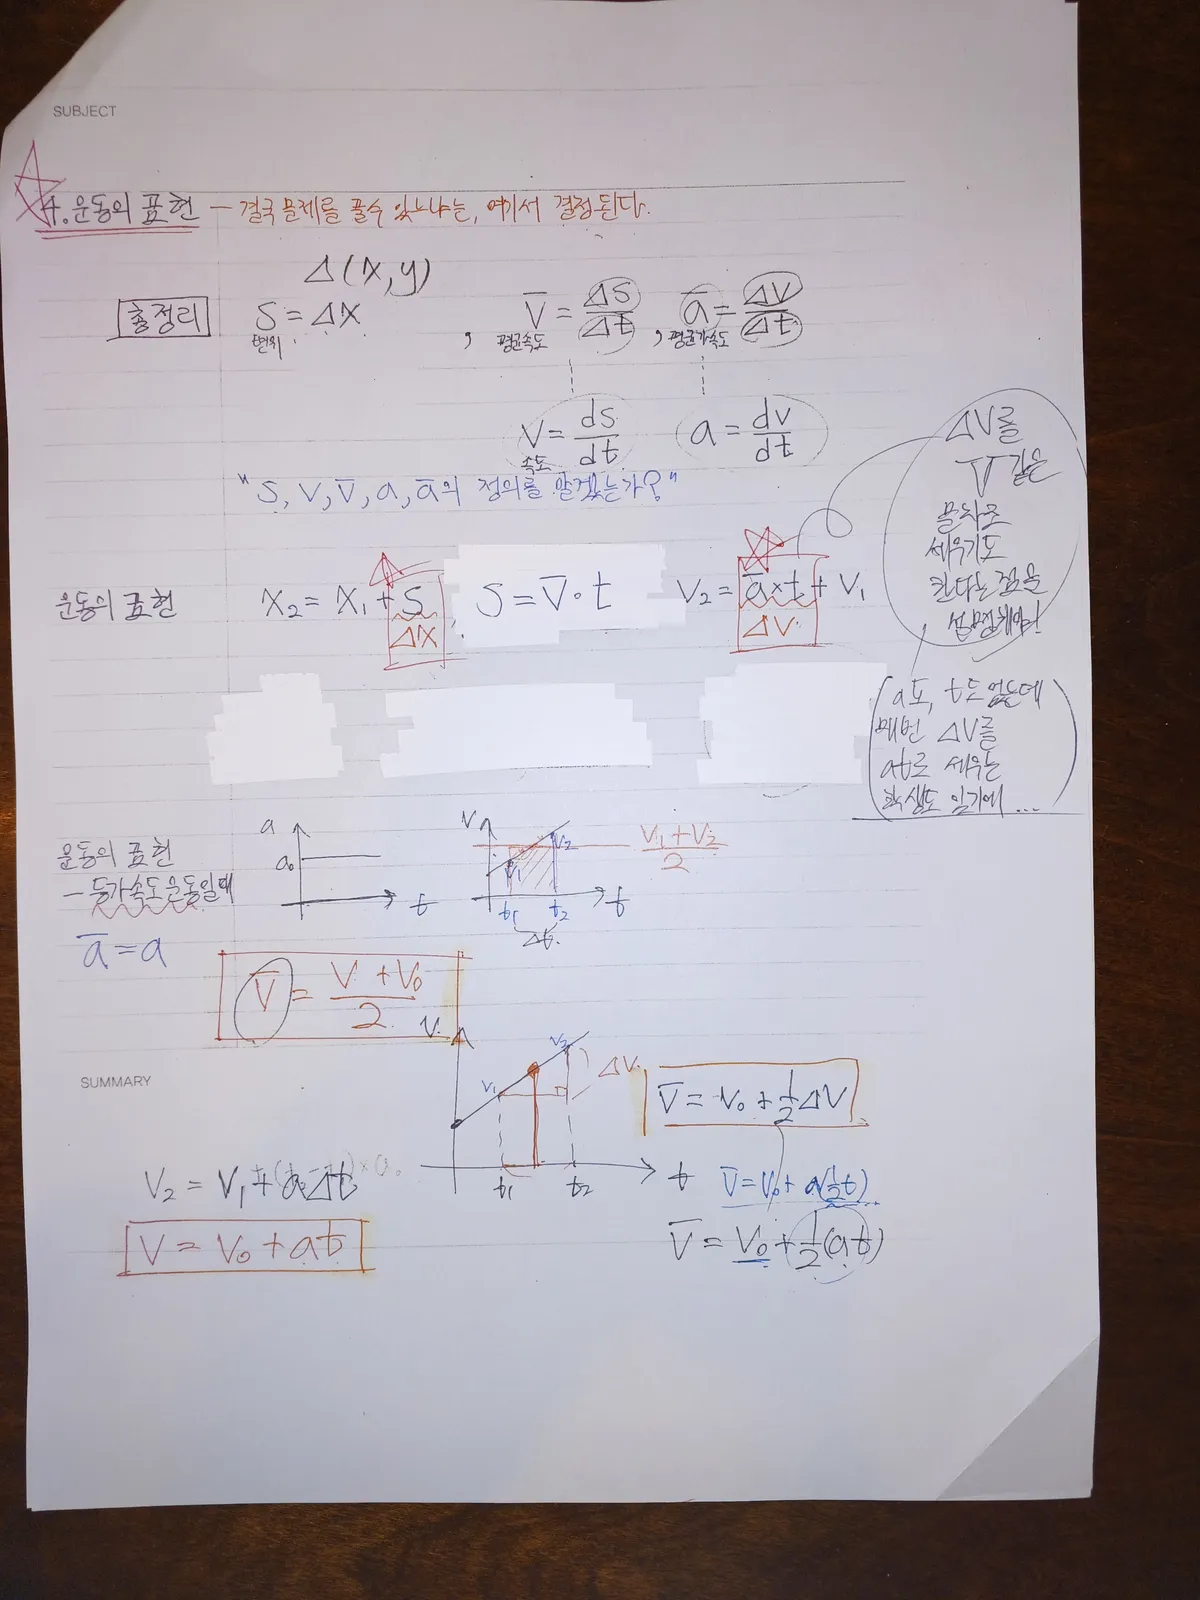 SUBJECT
4. 운동의 표현 - 결국 문제를 풀수 있느냐는, 여기서 결정된다.
Δ(x,y)
총정리 S = ΔX , V̄ = ΔS/Δt , ā = ΔV/Δt
변위 평균속도 평균가속도
V = ds/dt a = dv/dt
속도
"S, V, V̄, a, ā의 정의를 알겠는가?"
ΔV를
V 같은
문자로
세우기도
한다는 점을
설명해야
운동의 표현 X₂ = X₁ + S , S = V̄·t V₂ = ā×t + V₁
ΔX ΔV
(a도, t도 없는데
매번 ΔV를
at로 세우는
학생도 있기에 ...
운동의 표현
- 등가속도운동일때
a a₀ t
V V₁ V₂ t₁ t₂ t
Δt
V₁+V₂/2
ā = a
V̄ = V+V₀/2
V V₁ V₂ ΔV t₁ t₂ t
SUMMARY
V̄ = V₀ + 1/2 ΔV
V₂ = V₁ + (a₀Δt)
V̄ = V₀ + a(1/2 t)
V = V₀ + at
V̄ = V₀ + 1/2(at)